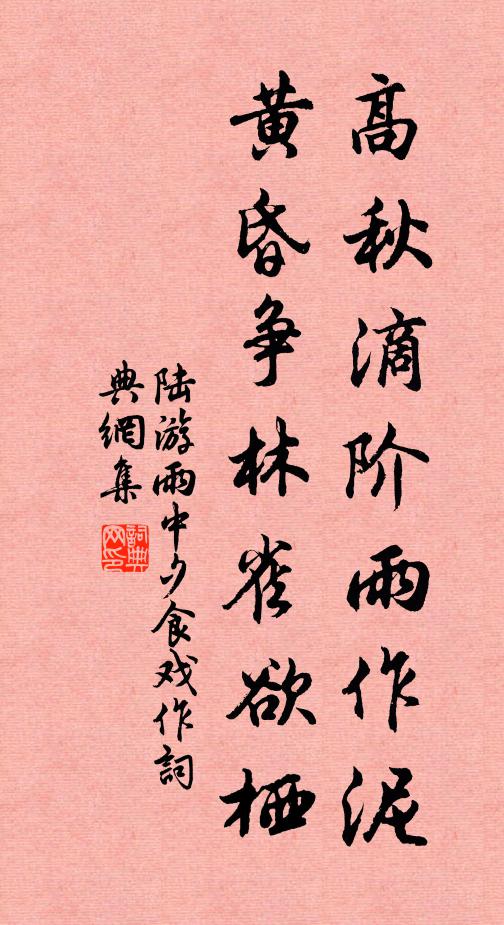 高秋滴阶雨作泥
黄昏争林雀欲栖
陆游雨中夕食戏作詞
典網集
詞典
网印